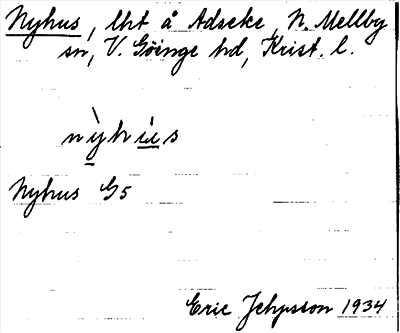 Nyhus, lht å Adseke, N. Mellby
sn, V. Göinge hd, Krist. l.
nỳhùs
Nyhus G5
Eric Jehpsson 1934